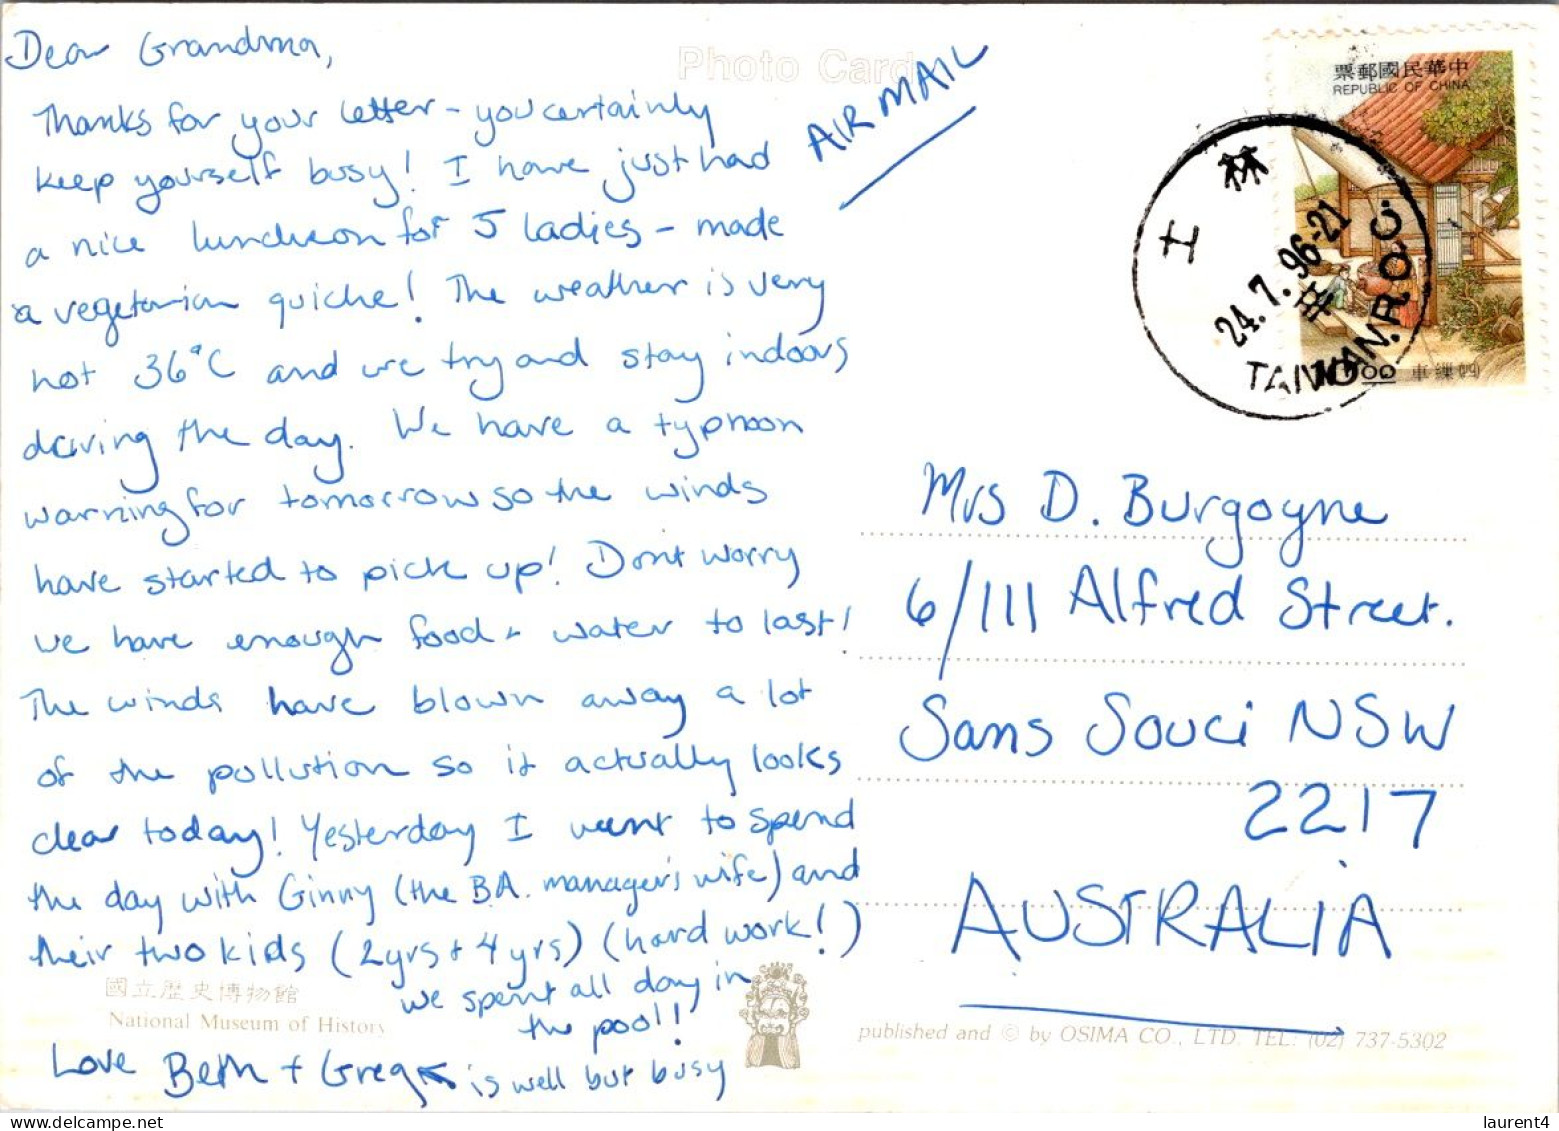 Dear Grandma,
Thanks for your letter - you certainly
keep yourself busy! I have just had
a nice luncheon for 5 ladies - made
a vegetarian quiche! The weather is very
hot 36°C and we try and stay indoors
during the day. We have a typhoon
warning for tomorrow so the winds
have started to pick up! Dont worry
we have enough food + water to last!
The winds have blown away a lot
of the pollution so it actually looks
clear today! Yesterday I went to spend
the day with Ginny (the B.A. manager's wife) and
their two kids (2yrs + 4 yrs) (hard work!)
we spent all day in
the pool!!
Love Beth + Greg is well but busy
國立歷史博物館
National Museum of History
Photo Card
AIR MAIL
票郵國民華中
REPUBLIC OF CHINA
車繅
士林
24.7.96-21
TAIWAN.R.O.C.
Mrs D. Burgoyne
6/111 Alfred Street.
Sans Souci NSW
2217
AUSTRALIA
published and © by OSIMA CO., LTD. TEL: (02) 737-5302
laurent4